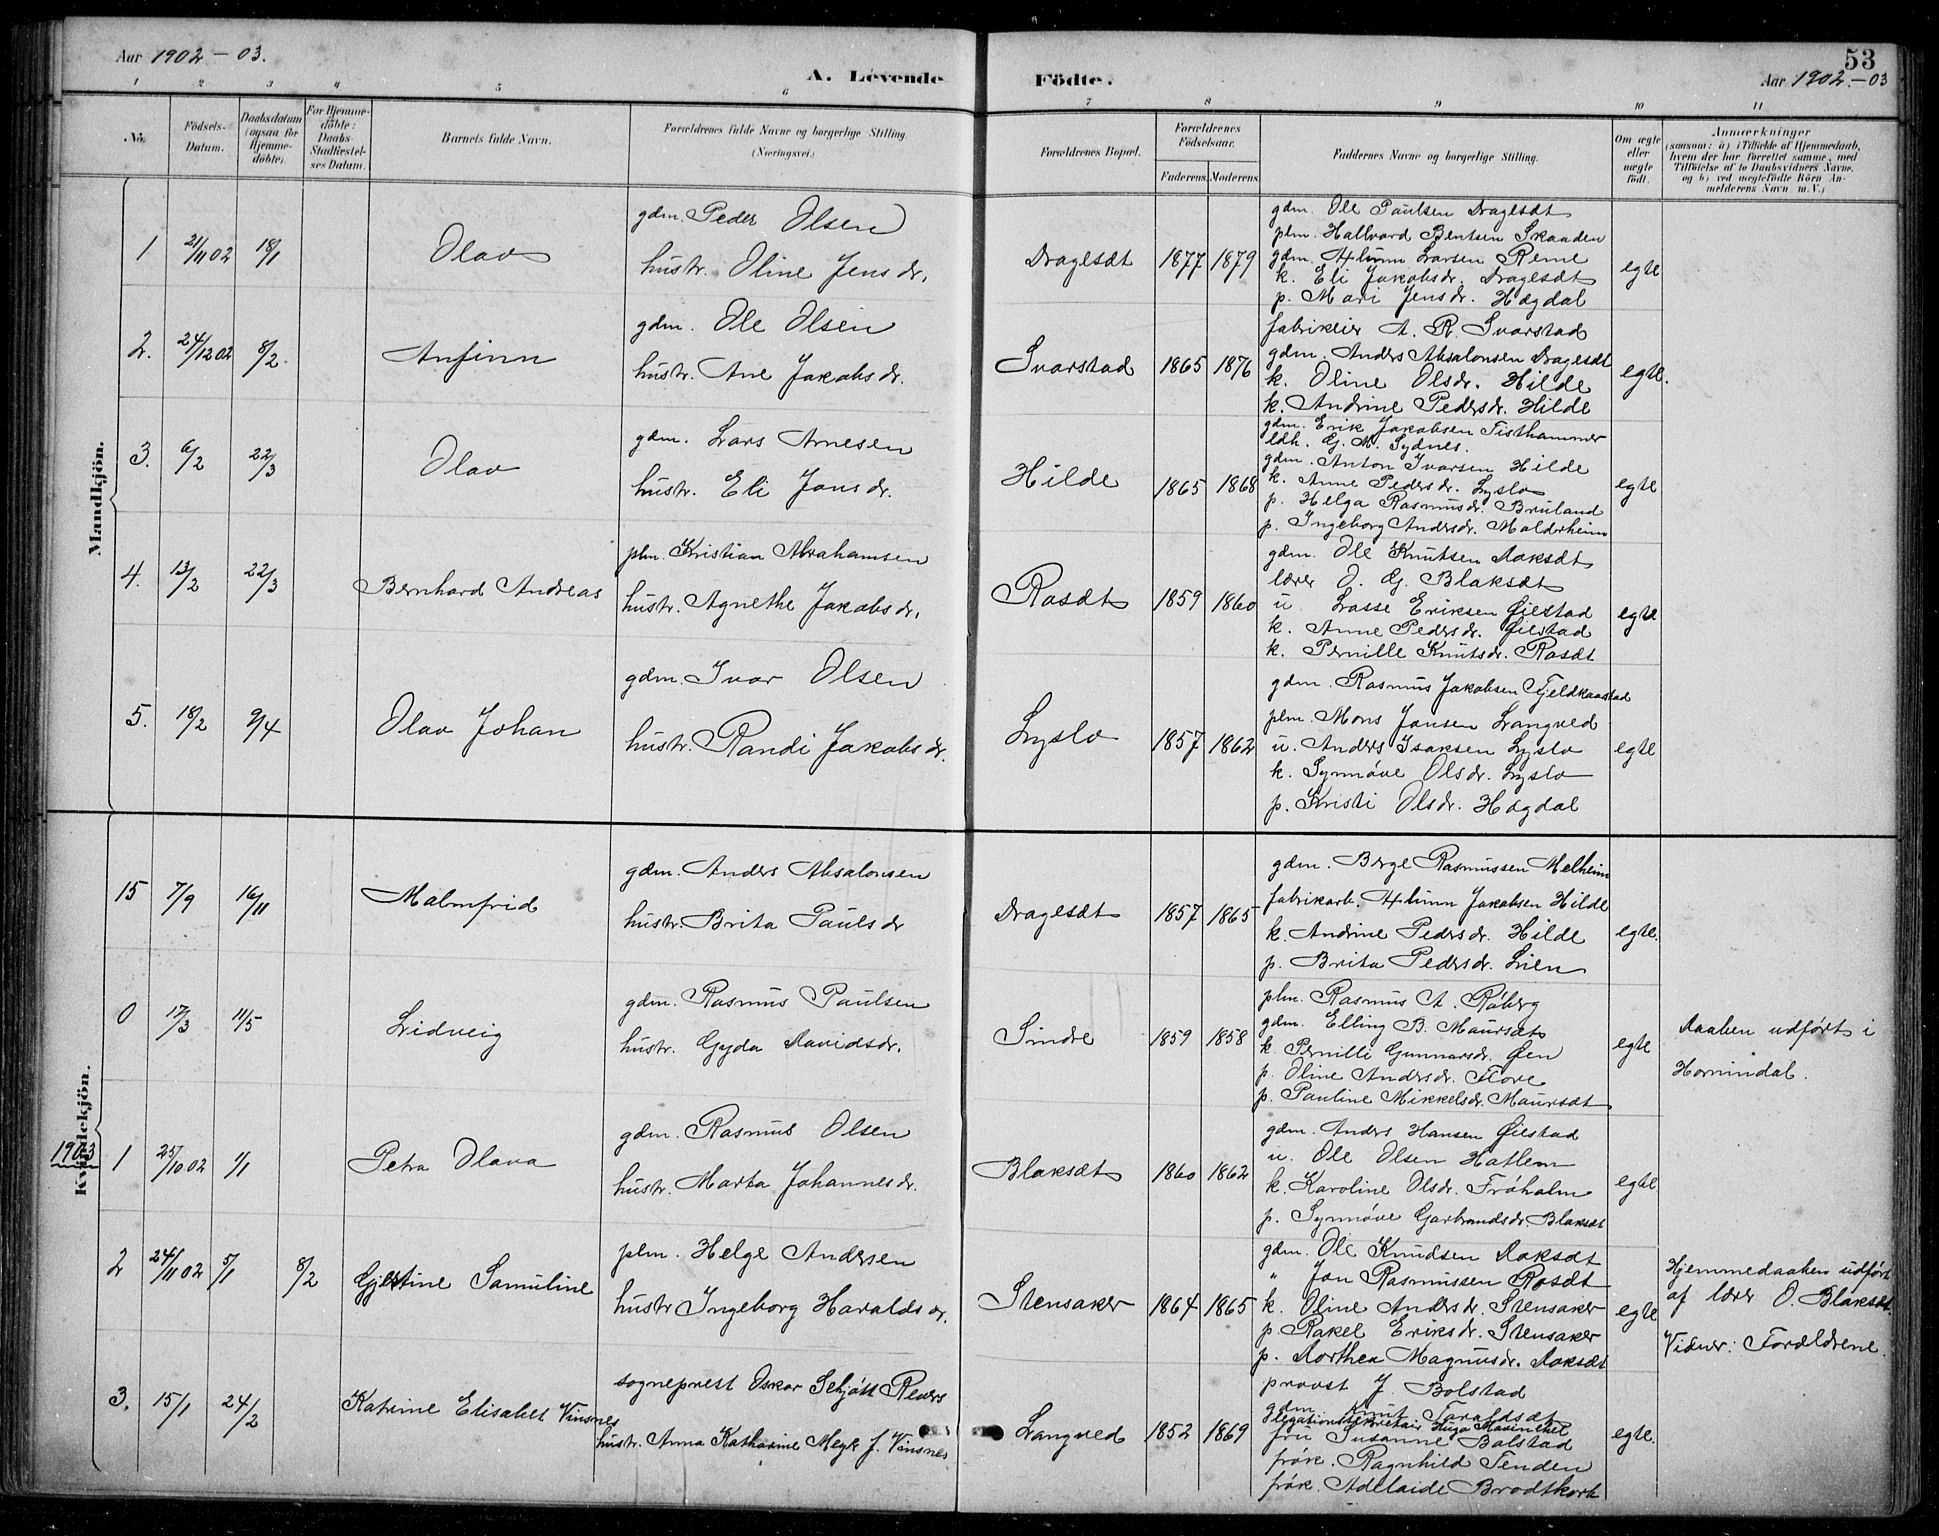 Aar 1902-03.
A. Levende Födte.
53
Aar 1902-03
1 2 3 4 5 6 7 8 9 10 11
No.
Födsels-Datum.
Daabsdatum (ogsaa for Hjemme-döbte).
For Hjemme-döbte: Daabs-Stadfæstel-ses Datum.
Barnets fulde Navn.
Forældrenes fulde Navne og borgerlige Stilling. (Næringsvei.)
Forældrenes Bopæl.
Forældrenes Födselsaar.
Faderens. Moderens.
Faddernes Navne og borgerlige Stilling.
Om ægte eller uægte födt.
Anmærkninger
(saasom: a) i Tilfælde af Hjemmedaab,
hvem der har forrettet samme, med
Tilföielse af to Daabsvidners Navne.
og b) ved uægtefödte Börn An-
melderens Navn m.V.)
Mandkjön.
1 21/11 02 18/1 Olav
gdm. Peder Olsen
hustr. Oline Jensdr.
Dragesæt 1877 1879
gdm. Ole Paulsen Dragesæt
plm. Hallvard Bentsen Skaaden
gdm. Larsen Reme
k. Eli Jakobsdr. Dragesæt
p. Mari Jensdr. Hægdal
egte
2. 24/12 02 8/2. Anfinn
gdm. Ole Olsen
hustr. Ane Jakobsdr.
Svarstad 1865 1876
fabrikeier A. R. Svarstad
gdm. Anders Absalonsen Dragesæt
k. Oline Olsdr. Hilde
k. Andrine Pedersdr. Hilde
egte.
3. 6/2 22/3 Olav
gdm. Lars Arnesen
hustr. Eli Jonsdr.
Hilde 1865 1868
gdm. Erik Jakobsen Tisthammer
ldh. G. M. Sydnes.
gdm. Anton Ivarsen Hilde
k. Anne Pedersdr. Lyslo
p. Helga Rasmusdr. Bruland
p. Ingeborg Andersdr. Molderheim
egte
4. 13/2 22/3 Bernhard Andreas
plm. Kristian Abrahamsen
hustr. Agnethe Jakobsdr.
Rosæt 1859 1860
gdm. Ole Knutsen Aaksæt
lærer O. G. Blaksæt
u. Lasse Eriksen Øiestad
k. Anne Pedersdr. Øiestad
k. Pernille Knutsdr. Rosæt
egte
5. 18/2 9/4 Olav Johan
gdm. Ivar Olsen
hustr. Randi Jakobsdr.
Lyslo 1857 1862
gdm. Rasmus Jakobsen Fjeldkaarstad
plm. Mons Jonsen Langved
u. Anders Isaksen Lyslo
k. Synnøve Olsdr. Lyslo
p. Kristi Olsdr. Hægdal
egte
Kvindekjön.
15 7/9 16/11 Malmfrid
gdm. Anders Absalonsen
hustr. Brita Paulsdr
Dragesæt 1857 1865
gdm. Berge Rasmussen Melheim
fabrikarb. Jakobsen Hilde
k. Andrine Pedersdr. Hilde
p. Brita Pedersdr. Lien
egte.
0 17/3 11/5 Lidveig
gdm. Rasmus Paulsen
hustr. Gyda Davidsdr.
Sindre 1859 1858
plm. Rasmus A. Råberg
gdm. Elling B. Maursæt
k. Pernille Gunnarsdr. Øen
p. Oline Andersdr. Flore
p. Pauline Mikkelsdr. Maursæt
egte
Daaben udført i
Hornindal.
1903
1 25/10 02 1/1 Petra Olava
gdm. Rasmus Olsen
hustr. Marta Johannesdr.
Blaksæt 1860 1862
gdm. Anders Hansen Øiestad
u. Ole Olsen Hatlem
k. Karoline Olsdr. Frøholm
p. Synnøve Garbrandsdr. Blaksæt
egte
2 24/11 02 5/1 8/2 Gjertine Samuline
plm. Helge Andersen
hustr Ingeborg Haraldsdr.
Stensaker 1864 1865
gdm. Ole Knudsen Aaksæt
" Jon Rasmussen Rosæt
k. Oline Andersdr. Stensaker
p. Rakel Eriksdr. Stensaker
p. Dorthea Magnusdr. Aaksæt
egte
Hjemmedaaben udført
af lærer O. Blaksæt.
Vidner: Forældrene.
3. 15/1 24/2 Katrine Elisabet Vinsnes
sogneprest Oskar Schjøtt Reders
hustr. Anna Katharine Meyk f. Vinsnes
Langved 1852 1869
provst J. Bolstad
gdm. Knut Taraldsæt
legationssekretair Huga
fru Susanne Bolstad
frøk. Ragnhild Tenden
frøk. Adelaide Brodtkorb
egte.